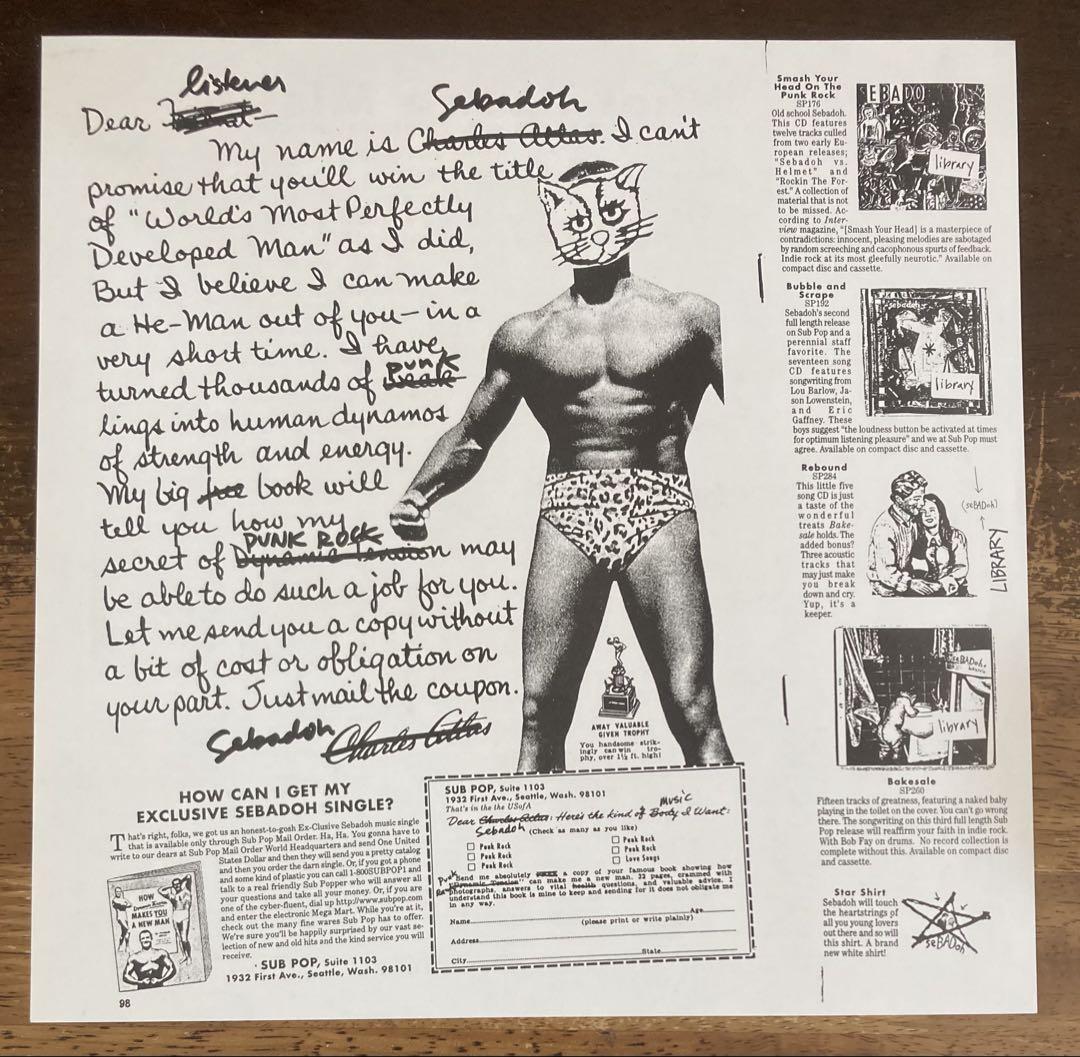 listener
Dear
Sebadoh
My name is Charles Atlas. I can't
promise that you'll win the title
of "World's Most Perfectly
Developed Man" as I did,
But I believe I can make
a He-Man out of you—in a
very short time. I have
punk
turned thousands of weak
lings into human dynamos
of strength and energy.
My big free book will
tell you how my
PUNK ROCK
secret of Dynamic Tension may
be able to do such a job for you.
Let me send you a copy without
a bit of cost or obligation on
your part. Just mail the coupon.
Sebadoh Charles Atlas
AWAY VALUABLE
GIVEN TROPHY
You handsome strik-
ingly can win tro-
phy, over 1½ ft. high!
HOW CAN I GET MY
EXCLUSIVE SEBADOH SINGLE?
That's right, folks, we got us an honest-to-gosh Ex-Clusive Sebadoh music single
that is available only through Sub Pop Mail Order. Ha, Ha. You gonna have to
write to our dears at Sub Pop Mail Order World Headquarters and send One United
States Dollar and then they will send you a pretty catalog
and then you order the darn single. Or, if you got a phone
and some kind of plastic you can call 1-800SUBPOP1 and
talk to a real friendly Sub Popper who will answer all
your questions and take all your money. Or, if you are
one of the cyber-fluent, dial up http://www.subpop.com
and enter the electronic Mega Mart. While you're at it,
check out the many fine wares Sub Pop has to offer.
We're sure you'll be happily surprised by our vast se-
lection of new and old hits and the kind service you will
receive.
· SUB POP, Suite 1103
1932 First Ave., Seattle, Wash. 98101
HOW
MAKES YOU
A NEW MAN
98
SUB POP, Suite 1103
1932 First Ave., Seattle, Wash. 98101
That's in the the USofA
music
Dear Charles Atlas: Here's the kind of Body I Want:
Sebadoh (Check as many as you like)
Punk Rock
Punk Rock
Punk Rock
Punk Rock
Punk Rock
Love Songs
Punk
Send me absolutely FREE a copy of your famous book showing how
"Dynamic Tension" can make me a new man. 32 pages, crammed with
photographs, answers to vital health questions, and valuable advice. I
understand this book is mine to keep and sending for it does not obligate me
in any way.
Name Age
(please print or write plainly)
Address
City State
Smash Your
Head On The
Punk Rock
SP176
Old school Sebadoh.
This CD features
twelve tracks culled
from two early Eu-
ropean releases;
"Sebadoh vs.
Helmet" and
"Rockin The For-
est." A collection of
material that is not
to be missed. Ac-
cording to Inter-
view magazine, "[Smash Your Head] is a masterpiece of
contradictions: innocent, pleasing melodies are sabotaged
by random screeching and cacophonous spurts of feedback.
Indie rock at its most gleefully neurotic." Available on
compact disc and cassette.
EBADO
library
Bubble and
Scrape
SP192
Sebadoh's second
full length release
on Sub Pop and a
perennial staff
favorite. The
seventeen song
CD features
songwriting from
Lou Barlow, Ja-
son Lowenstein,
and Eric
Gaffney. These
boys suggest "the loudness button be activated at times
for optimum listening pleasure" and we at Sub Pop must
agree. Available on compact disc and cassette.
sebadoh
library
Rebound
SP284
This little five
song CD is just
a taste of the
wonderful
treats Bake-
sale holds. The
added bonus?
Three acoustic
tracks that
may just make
you break
down and cry.
Yup, it's a
keeper.
(seBADoh)
LIBRARY
seBADoh.
library
Bakesale
SP260
Fifteen tracks of greatness, featuring a naked baby
playing in the toilet on the cover. You can't go wrong
there. The songwriting on this third full length Sub
Pop release will reaffirm your faith in indie rock.
With Bob Fay on drums. No record collection is
complete without this. Available on compact disc
and cassette.
Star Shirt
Sebadoh will touch
the heartstrings of
all you young lovers
out there and so will
this shirt. A brand
new white shirt!
seBADoh